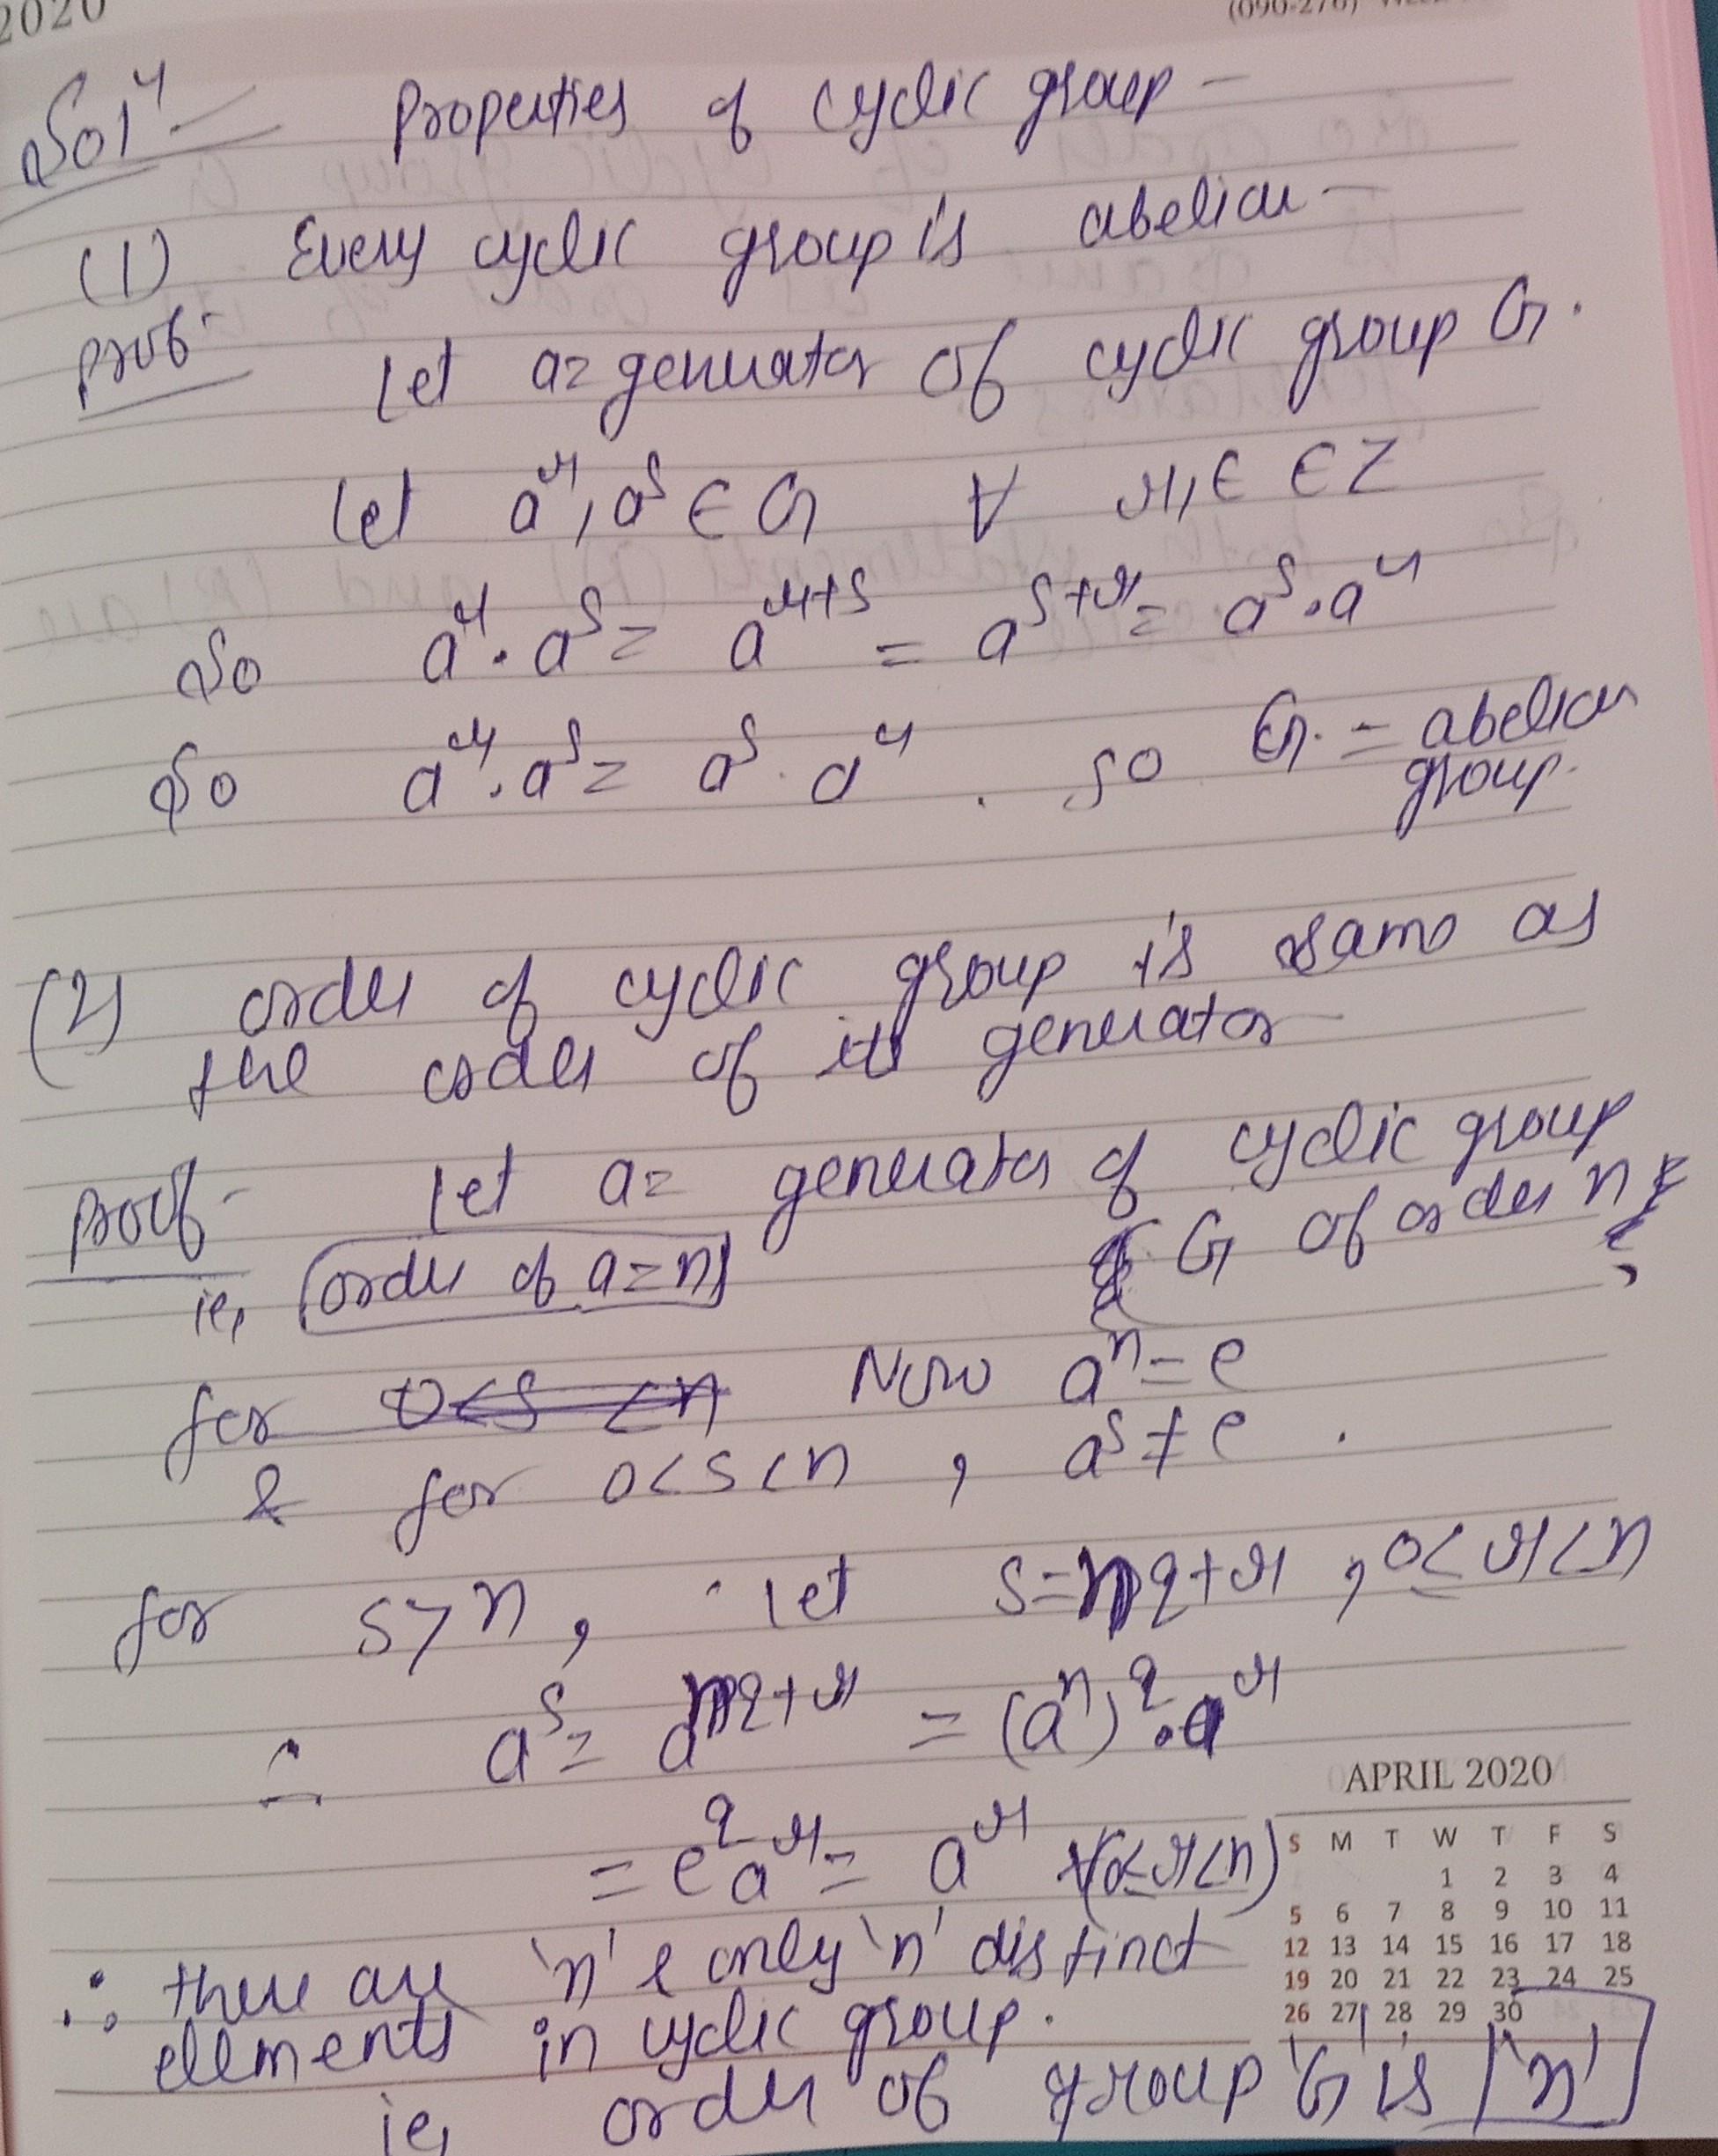 2020
(090-276)
Sol^n
Properties of cyclic group -
(1) Every cyclic group is abelian -
Prof- Let a= generator of cyclic group G.
Let a^r, a^s ∈ G ∀ r, ∈ ∈ Z
So a^r . a^s = a^{r+s} = a^{s+r} = a^s . a^r
So a^r . a^s = a^s . a^r . so G. = abelian
group.
(2) order of cyclic group is same as
the order of its generator
Proof- Let a= generator of cyclic group
G of order n
ie, order of a=n
for 0<s<n Now a^n = e
& for 0<s<n , a^s ≠ e .
for s>n, let s=nq+r , 0≤r<n
∴ a^s = a^{nq+r} = (a^n)^q . a^r
= e^q a^r = a^r ∀(0≤r<n)
∴ there are 'n' & only 'n' distinct
elements in cyclic group.
ie, order of group 'G' is 'n'
APRIL 2020
S M T W T F S
1 2 3 4
5 6 7 8 9 10 11
12 13 14 15 16 17 18
19 20 21 22 23 24 25
26 27 28 29 30